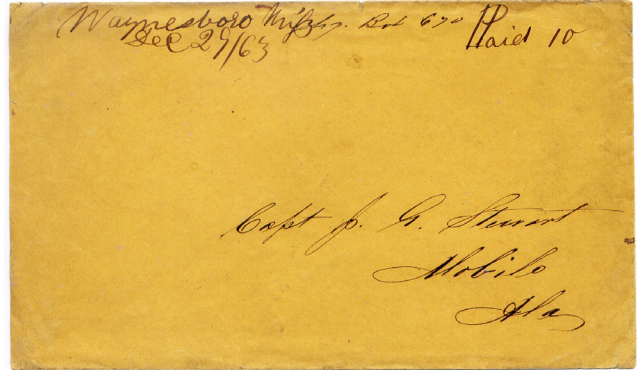 Waynesboro Box 670 Paid 10
Dec 29/63
Capt J. G. Stewart
Mobile
Ala